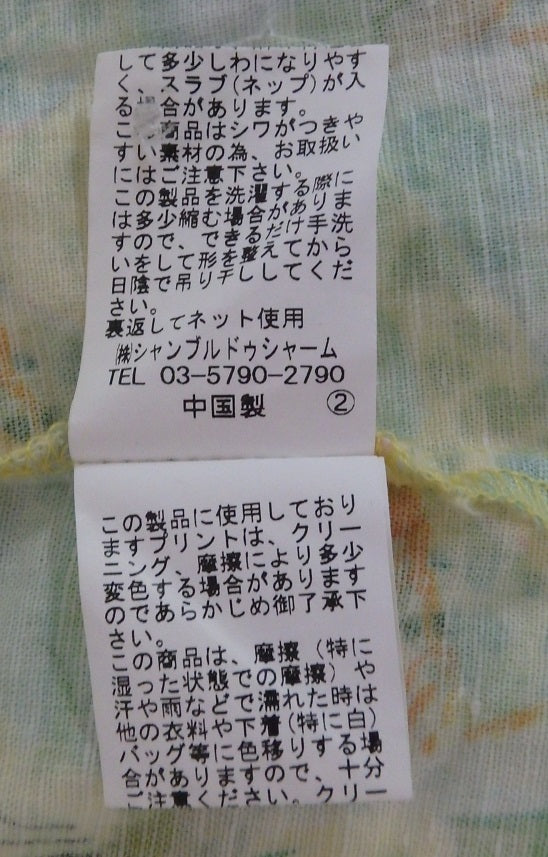 して多少しわになりやす
く、スラブ(ネップ)が入
る場合があります。
この商品はシワがつきや
すい素材の為、お取扱い
にはご注意下さい。
この製品を洗濯する際に
は多少縮む場合がありま
すので、できるだけ手洗
いをして形を整えてから
日陰で吊り干ししてくだ
さい。
裏返してネット使用
㈱シャンブルドゥシャーム
TEL 03-5790-2790
中国製 ②
この製品に使用しており
ますプリントは、クリー
ニング、摩擦により多少
変色する場合があります
のであらかじめ御了承下
さい。
この商品は、摩擦(特に
湿った状態での摩擦)や
汗や雨などで濡れた時は
他の衣料や下着(特に白)
バッグ等に色移りする場
合がありますので、十分
ご注意ください。クリー